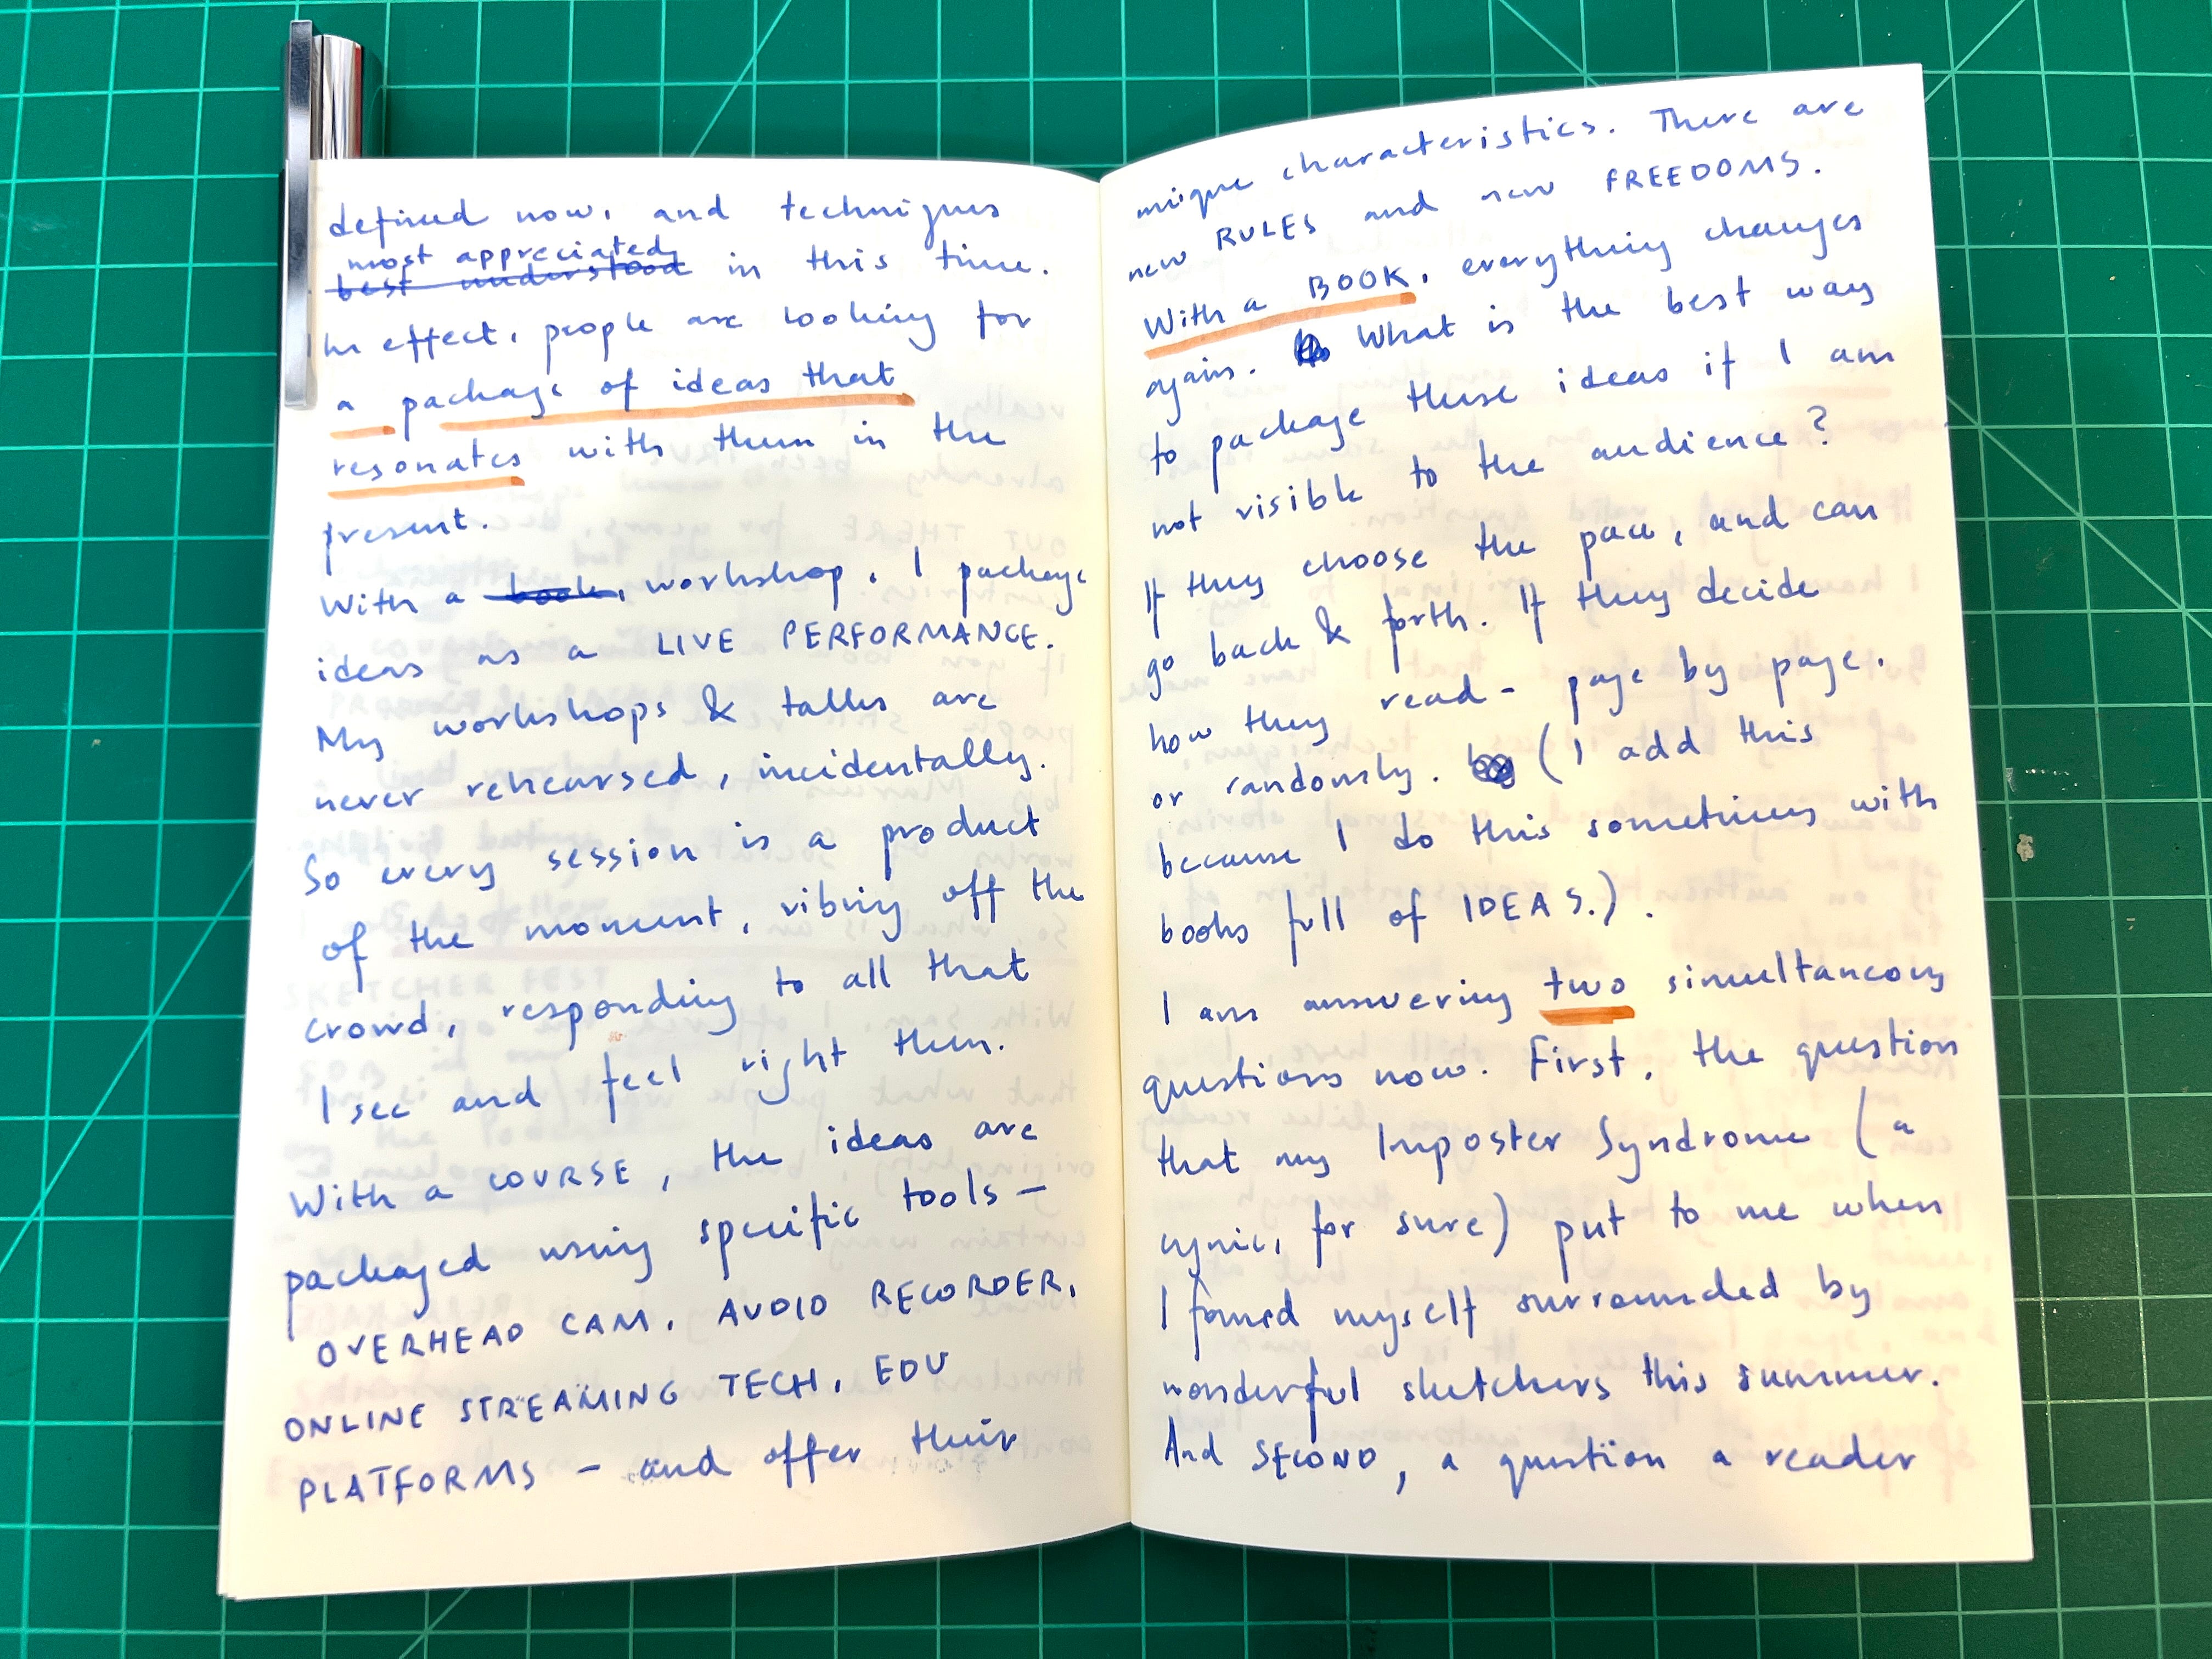 defined now, and techniques
most appreciated
best understood in this time.
In effect, people are looking for
a package of ideas that
resonates with them in the
present.
With a book, workshop, I package
ideas as a LIVE PERFORMANCE.
My workshops & talks are
never rehearsed, incidentally.
So every session is a product
of the moment, vibing off the
crowd, responding to all that
I see and feel right then.
With a COURSE, the ideas are
packaged using specific tools –
OVERHEAD CAM, AUDIO RECORDER,
ONLINE STREAMING TECH, EDU
PLATFORMS – and offer their
unique characteristics. There are
new RULES and new FREEDOMS.
With a BOOK, everything changes
again. What is the best way
to package these ideas if I am
not visible to the audience?
If they choose the pace, and can
go back & forth. If they decide
how they read – page by page,
or randomly. (I add this
because I do this sometimes with
books full of IDEAS.).
I am answering two simultaneous
questions now. First, the question
that my Imposter Syndrome (a
cynic, for sure) put to me when
I found myself surrounded by
wonderful sketchers this summer.
And SECOND, a question a reader